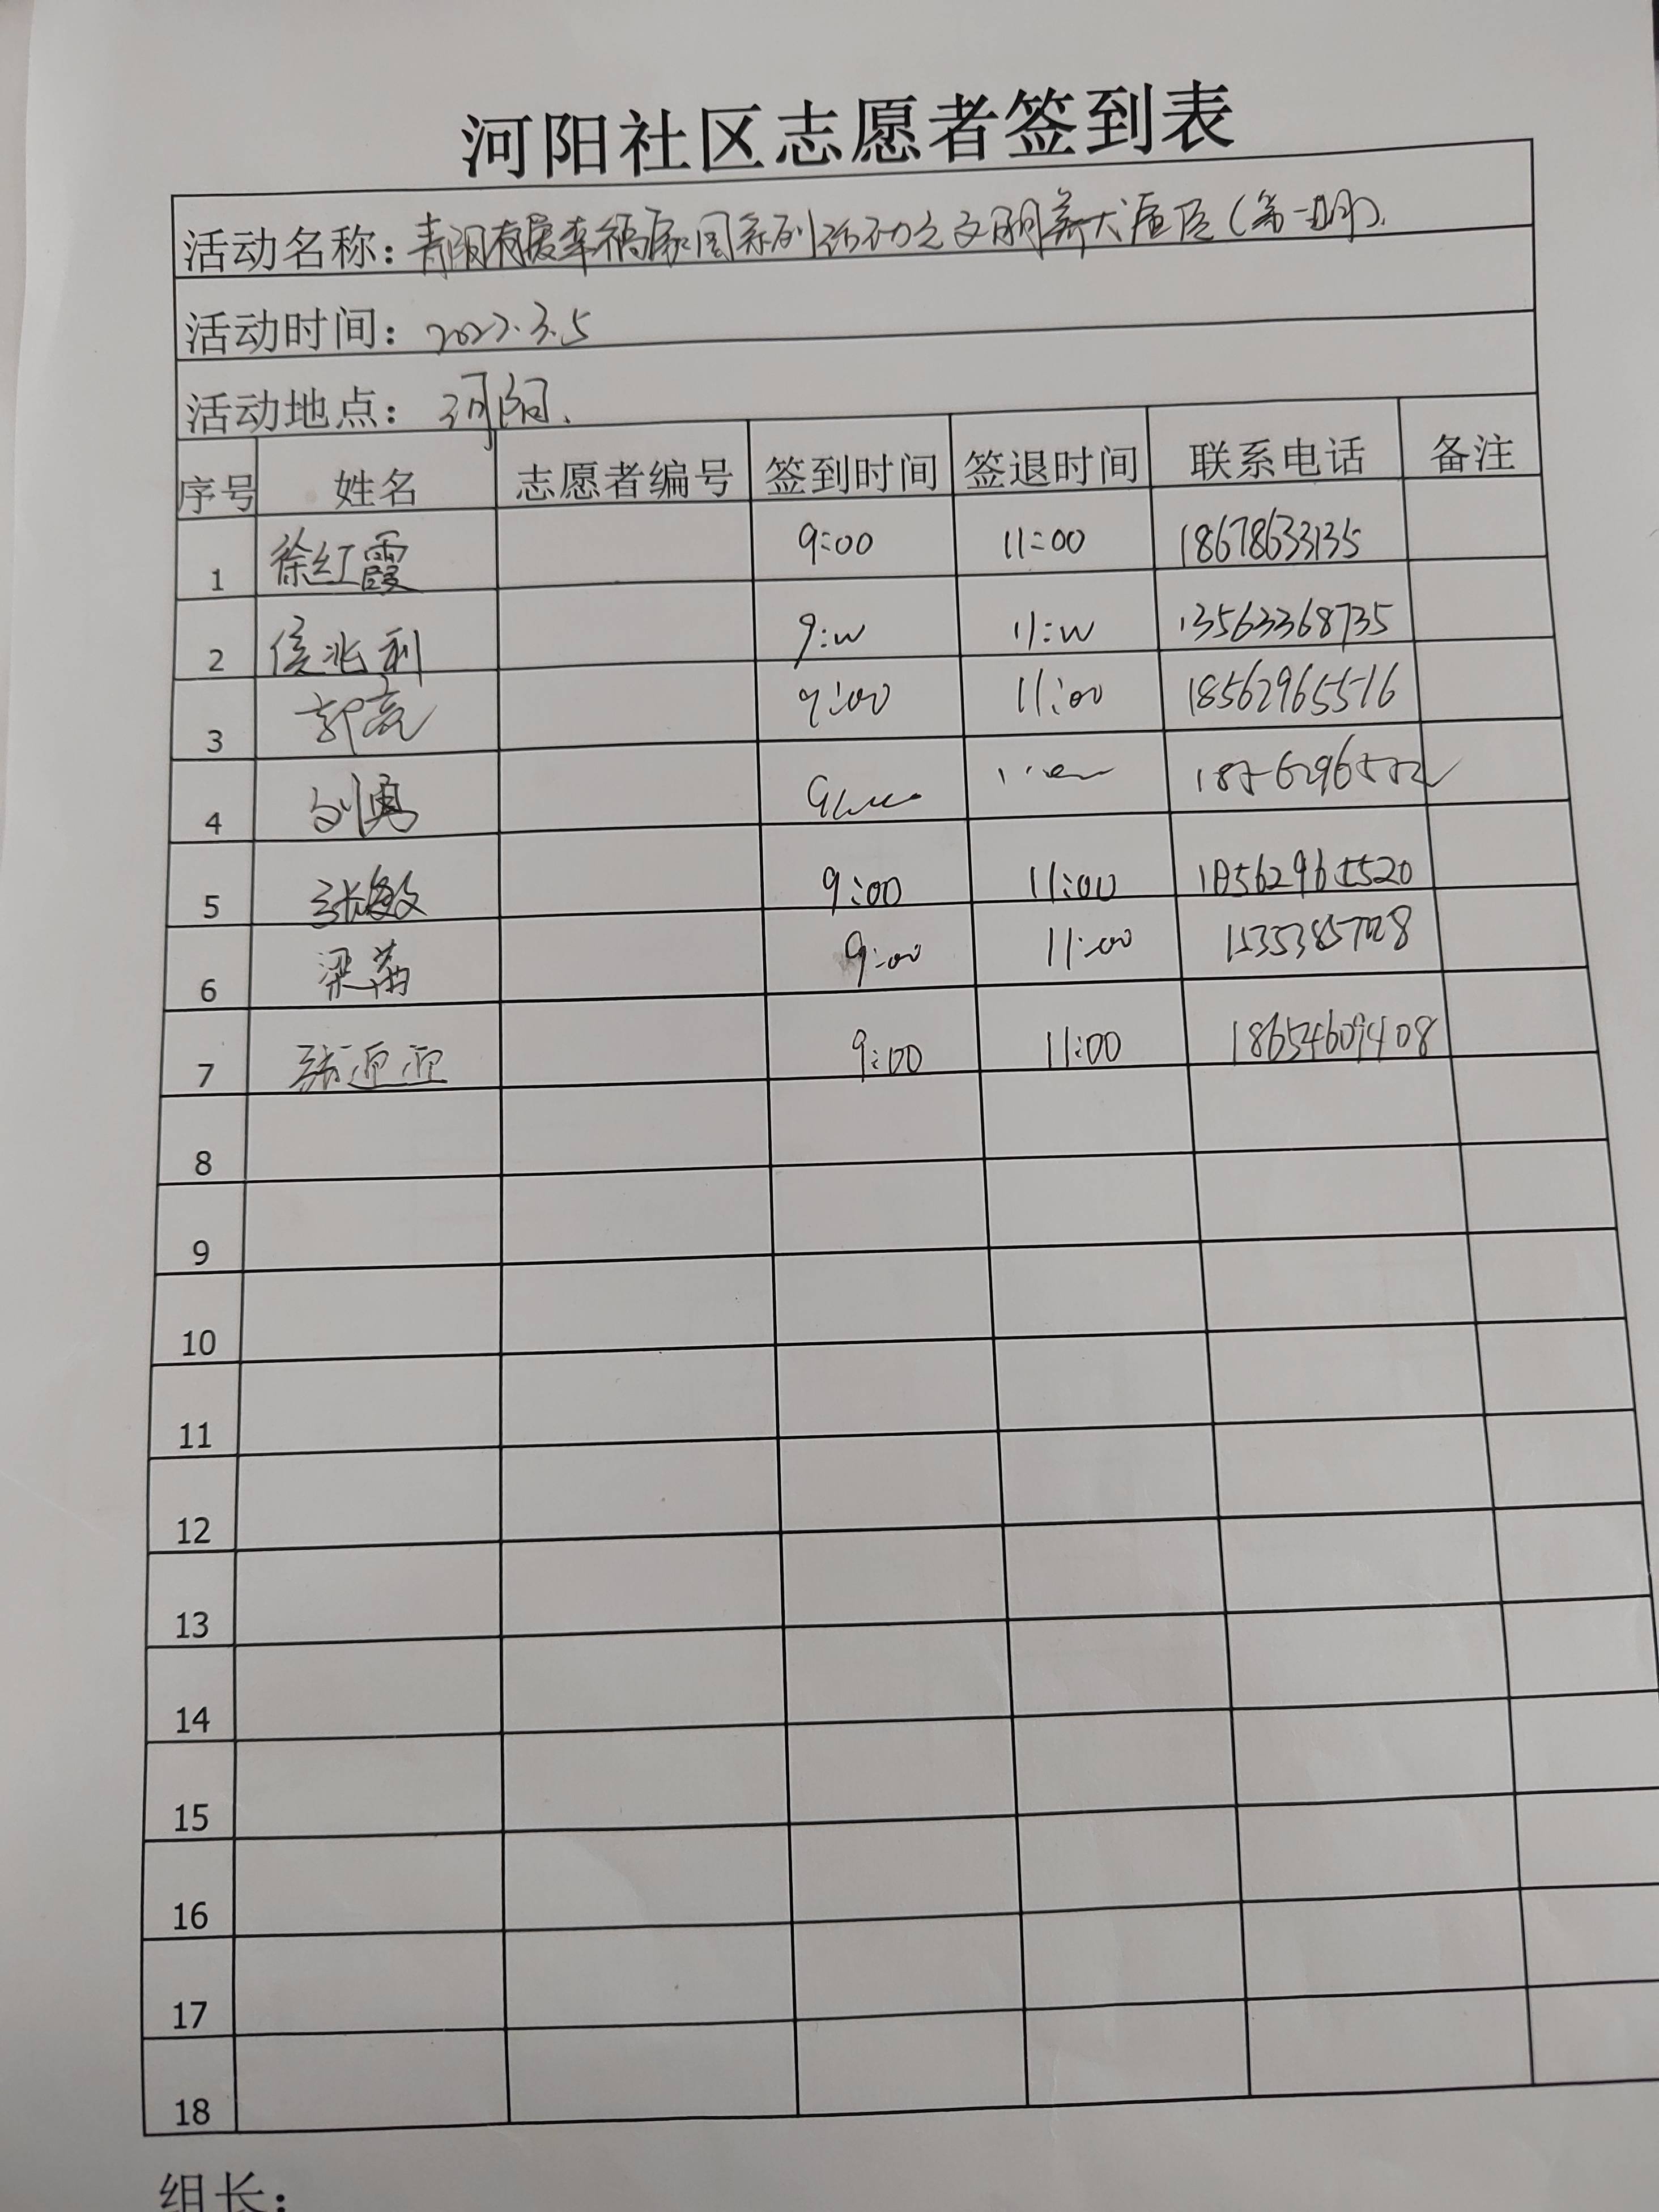 河阳社区志愿者签到表
活动名称：青阳有爱幸福家园系列活动之文明养犬宣传（第一期）.
活动时间：2022.3.5
活动地点：河阳.
序号 姓名 志愿者编号 签到时间 签退时间 联系电话 备注
1 徐红霞 9:00 11:00 18678633135
2 侯兆利 9:00 11:00 13563368735
3 郭亮 9:00 11:00 18562965516
4 刘勇
5 张敏 9:00 11:00 18562965520
6 梁茜 9:00 11:00
7 张迎迎 9:00 11:00 18654609408
8
9
10
11
12
13
14
15
16
17
18
组长：